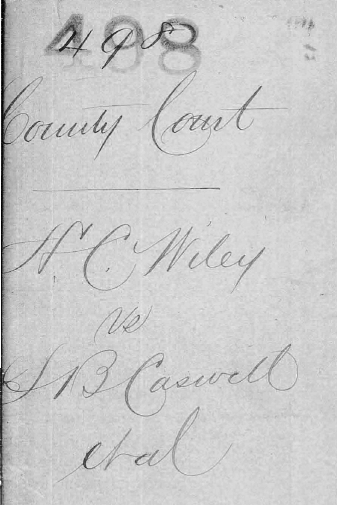 498
County Court
H. C. Wiley
vs
S B Caswell
et al